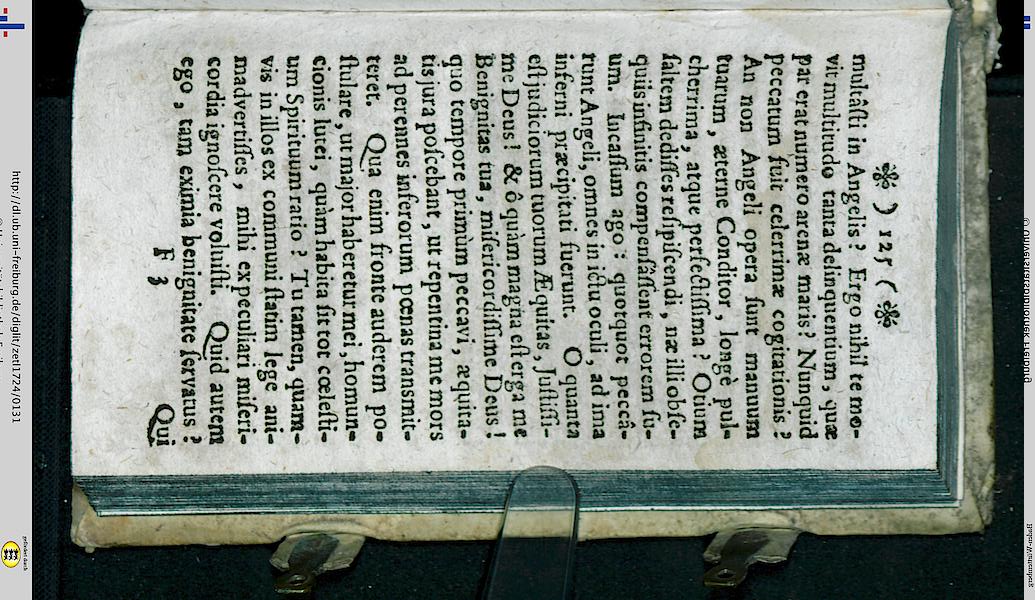 ❋ ) 125 ( ❋
multâſti in Angelis? Ergo nihil te mo-
vit multitudo tanta delinquentium, quæ
par erat numero arenæ maris? Nunquid
peccatum fuit celerrimæ cogitationis?
An non Angeli opera ſunt manuum
tuarum, æterne Conditor, longè pul-
cherrima, atque perfectiſſima? Otium
ſaltem dediſſes reſipiſcendi, næ illi obſe-
quiis infinitis compenſâſſent errorem ſu-
um. Incaſſum ago: quotquot peccâ-
runt Angeli, omnes in ictu oculi, ad ima
inferni præcipitati fuerunt. O quanta
eſt judiciorum tuorum Æquitas, Juſtiſſi-
me Deus! & ô quàm magna eſt erga me
Benignitas tua, miſericordiſſime Deus!
quo tempore primùm peccavi, æquita-
tis jura poſcebant, ut repentina me mors
ad perennes inferorum pœnas transmit-
teret. Qua enim fronte auderem po-
ſtulare, ut major haberetur mei, homun-
cionis lutei, quàm habita ſit tot cœleſti-
um Spirituum ratio? Tu tamen, quam-
vis in illos ex communi ſtatim lege ani-
madvertiſſes, mihi ex peculiari miſeri-
cordia ignoſcere voluiſti. Quid autem
ego, tam eximia benignitate ſervatus?
F 3 Qui
http://dl.ub.uni-freiburg.de/diglit/zetl1724/0131
© Universitätsbibliothek Freiburg
gefördert durch
Baden-Württemberg